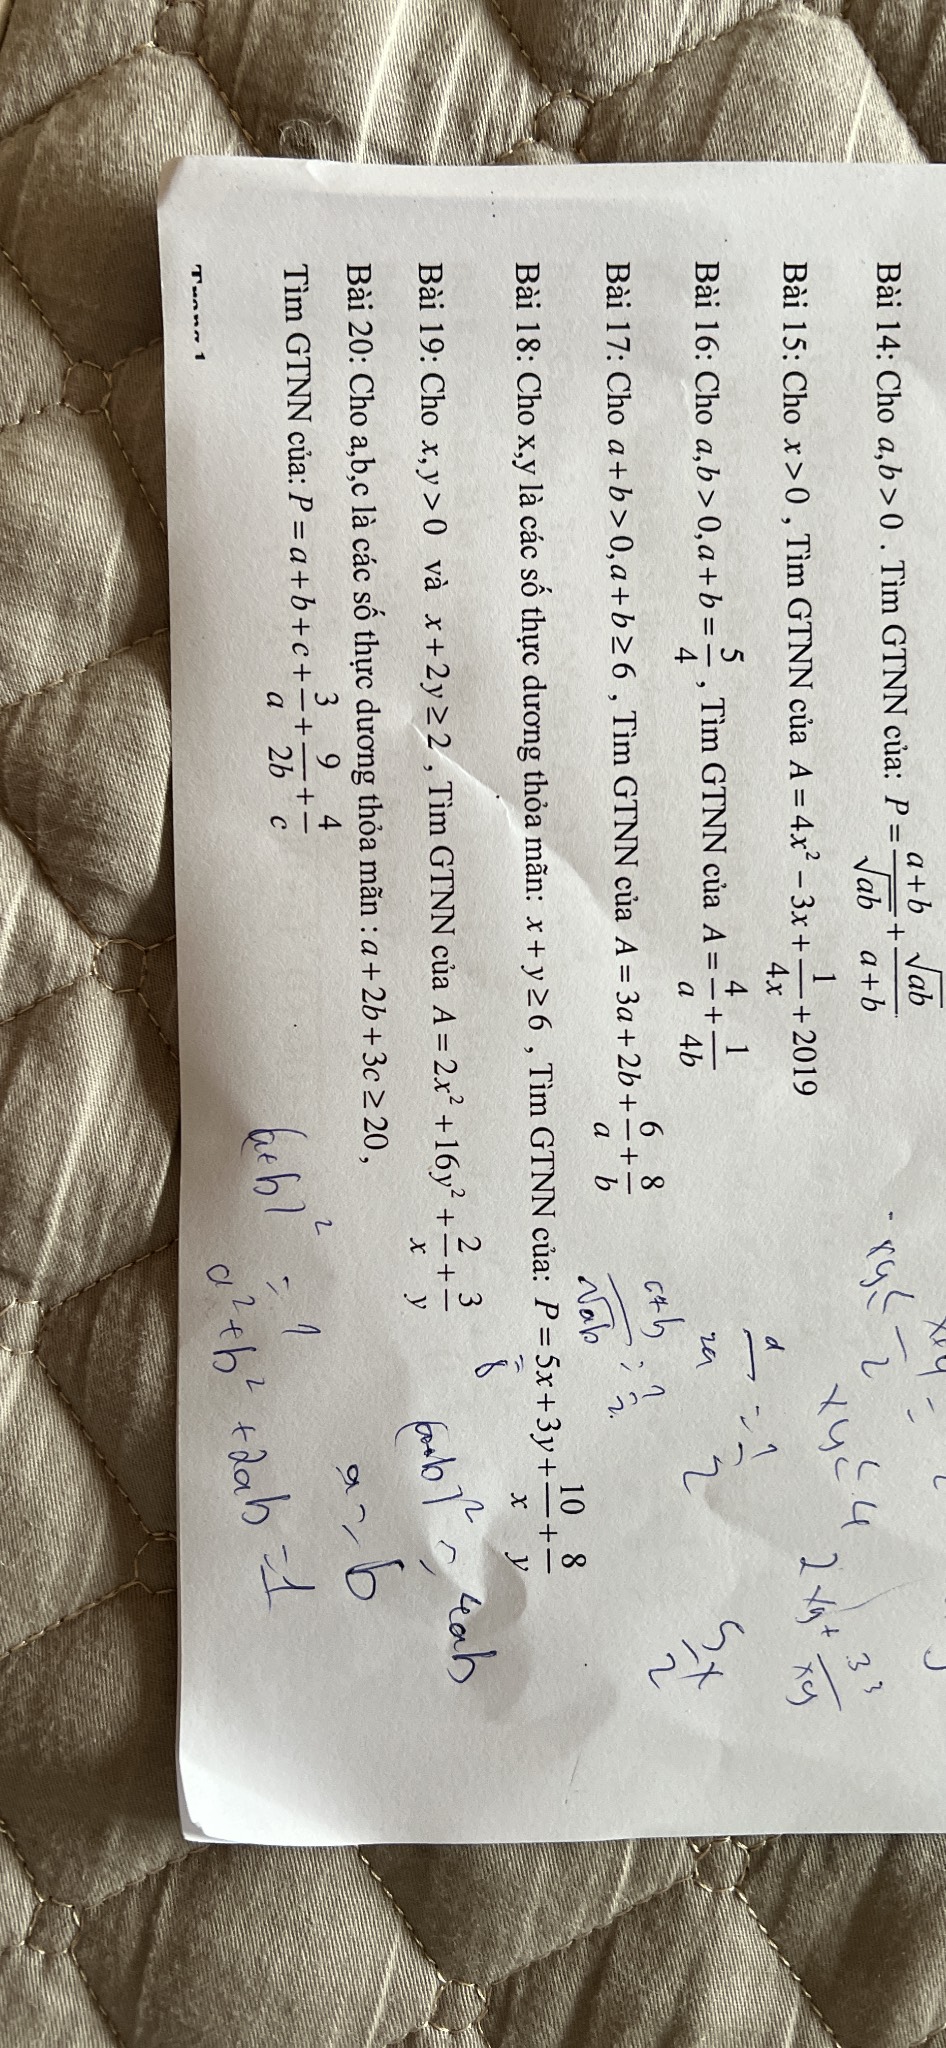 Bài 14: Cho a,b > 0 . Tìm GTNN của: P = \frac{a+b}{\sqrt{ab}} + \frac{\sqrt{ab}}{a+b}
Bài 15: Cho x > 0 , Tìm GTNN của A = 4x² − 3x + \frac{1}{4x} + 2019
Bài 16: Cho a,b > 0, a + b = \frac{5}{4} , Tìm GTNN của A = \frac{4}{a} + \frac{1}{4b}
Bài 17: Cho a + b > 0, a + b ≥ 6 , Tìm GTNN của A = 3a + 2b + \frac{6}{a} + \frac{8}{b}
Bài 18: Cho x,y là các số thực dương thỏa mãn: x + y ≥ 6 , Tìm GTNN của: P = 5x + 3y + \frac{10}{x} + \frac{8}{y}
Bài 19: Cho x, y > 0 và x + 2y ≥ 2 , Tìm GTNN của A = 2x² + 16y² + \frac{2}{x} + \frac{3}{y}
Bài 20: Cho a,b,c là các số thực dương thỏa mãn : a + 2b + 3c ≥ 20 ,
Tìm GTNN của: P = a + b + c + \frac{3}{a} + \frac{9}{2b} + \frac{4}{c}
xy ≤ 4
\frac{a+b}{\sqrt{ab}}
4ab
a = b
(a+b)² = 1
a² + b² + 2ab = 1